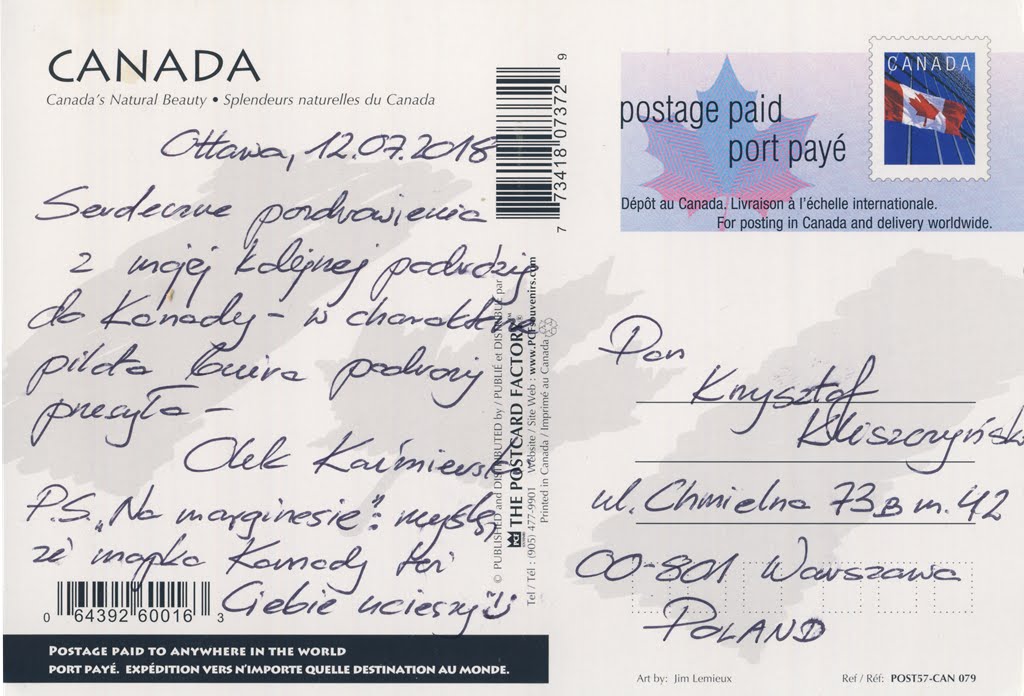 CANADA
Canada's Natural Beauty • Splendeurs naturelles du Canada
Ottawa, 12.07.2018
Serdeczne pozdrowienia
z mojej kolejnej podróży
do Kanady – w charakterze
pilota
przesyła –
Olek Kaźmierski
P.S. „Na marginesie": myślę,
że mapka Kanady też
Ciebie ucieszy
0 64392 60016 3
POSTAGE PAID TO ANYWHERE IN THE WORLD
PORT PAYÉ. EXPÉDITION VERS N'IMPORTE QUELLE DESTINATION AU MONDE.
7 73418 07372 9
© PUBLISHED and DISTRIBUTED by / PUBLIÉ et DISTRIBUÉ par
THE POSTCARD FACTORY
Tel / Tél : (905) 477-9901 Website / Site Web : www.PCFsouvenirs.com
Printed in Canada / Imprimé au Canada
CANADA
postage paid
port payé
Dépôt au Canada. Livraison à l'échelle internationale.
For posting in Canada and delivery worldwide.
Pan
Krzysztof
Kliszczyński
ul. Chmielna 73B m. 42
00-801 Warszawa
POLAND
Art by: Jim Lemieux
Ref / Réf: POST57-CAN 079